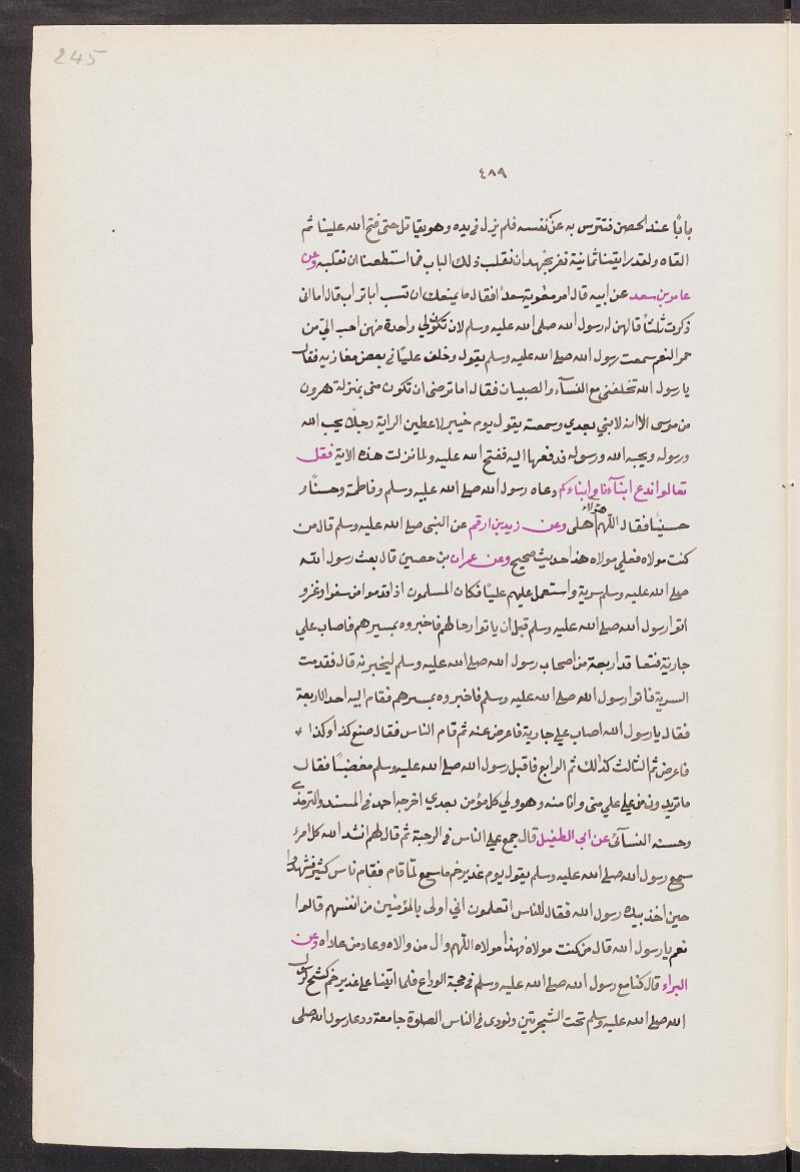 245
٤٨٩
بابًا عند الحصن فتترس به عن نفسه فلم يزل في يده وهو يقاتل حتى فتح الله علينا ثم
القاه ولقد رايتنا ثمانية نفر نجهد ان نقلب ذلك الباب فما استطعنا ان نقلبه وعن
عامر بن سعد عن ابيه قال امر معوية سعدًا فقال ما يمنعك ان تسب ابا تراب قال اما انى
ذكرت ثلثًا قالهن له رسول الله صلى الله عليه وسلم لان تكون لي واحدة منهن احب اليّ من
حمر النعم سمعت رسول الله صلى الله عليه وسلم يقول وخلف عليًا في بعض مغازيه فقال
يا رسول الله تخلفنى مع النسآء والصبيان فقال اما ترضى ان تكون منى بمنزلة هرون
من موسى الا انه لا نبي بعدي وسمعته يقول يوم خيبر لاعطين الراية رجلًا يحب الله
ورسوله ويحبه الله ورسوله فدفعها اليه ففتح الله عليه ولما نزلت هذه الاية فقل
تعالوا ندع ابنآءنا وابناءكم دعاه رسول الله صلى الله عليه وسلم وفاطمة وحسنًا و
حسينًا فقال اللهم هؤلاء اهلى وعن زيد بن ارقم عن النبى صلى الله عليه وسلم قال من
كنت مولاه فعلي مولاه هذا حديث صحيح وعن عمران بن حصين قال بعث رسول الله
صلى الله عليه وسلم سرية واستعمل عليهم عليًا فكان المسلمون اذا قدموا من سفر او غزو
اتوا رسول الله صلى الله عليه وسلم قبل ان ياتوا رحالهم فاخبروه بمسيرهم فاصاب علي
جارية فتعاقد اربعة من اصحاب رسول الله صلى الله عليه وسلم ليخبرنه قال فقدمت
السرية فاتوا رسول الله صلى الله عليه وسلم فاخبروه بمسيرهم فقام اليه احد الاربعة
فقال يا رسول الله اصاب علي جارية فاعرض عنه ثم قام الناس فقال صنع كذا وكذا
فاعرض ثم الثالث كذلك ثم الرابع فاقبل رسول الله صلى الله عليه وسلم مغضبًا فقال
ما تريدون من علي علي منى وانا منه وهو ولي كل مؤمن بعدي اخرجه احمد في المسند والترمذي
وحسنه النسآئى عن ابى الطفيل قال جمع علي الناس في الرحبة ثم قال لهم انشد الله كل امرء
سمع رسول الله صلى الله عليه وسلم يقول يوم غدير خم ما سمع لمّا قام فقام ناس كثير فشهدوا
حين اخذ بيده رسول الله فقال للناس اتعلمون اني اولى بالمؤمنين من انفسهم قالوا
نعم يا رسول الله قال من كنت مولاه فهذا مولاه اللهم وال من والاه وعاد من عاداه وعن
البراء قال كنا مع رسول الله صلى الله عليه وسلم في حجة الوداع فلما اتينا على غدير خم كشح لرسول
الله صلى الله عليه وسلم تحت الشجرتين ونودى في الناس الصلوة جامعة ودعا رسول الله صلى